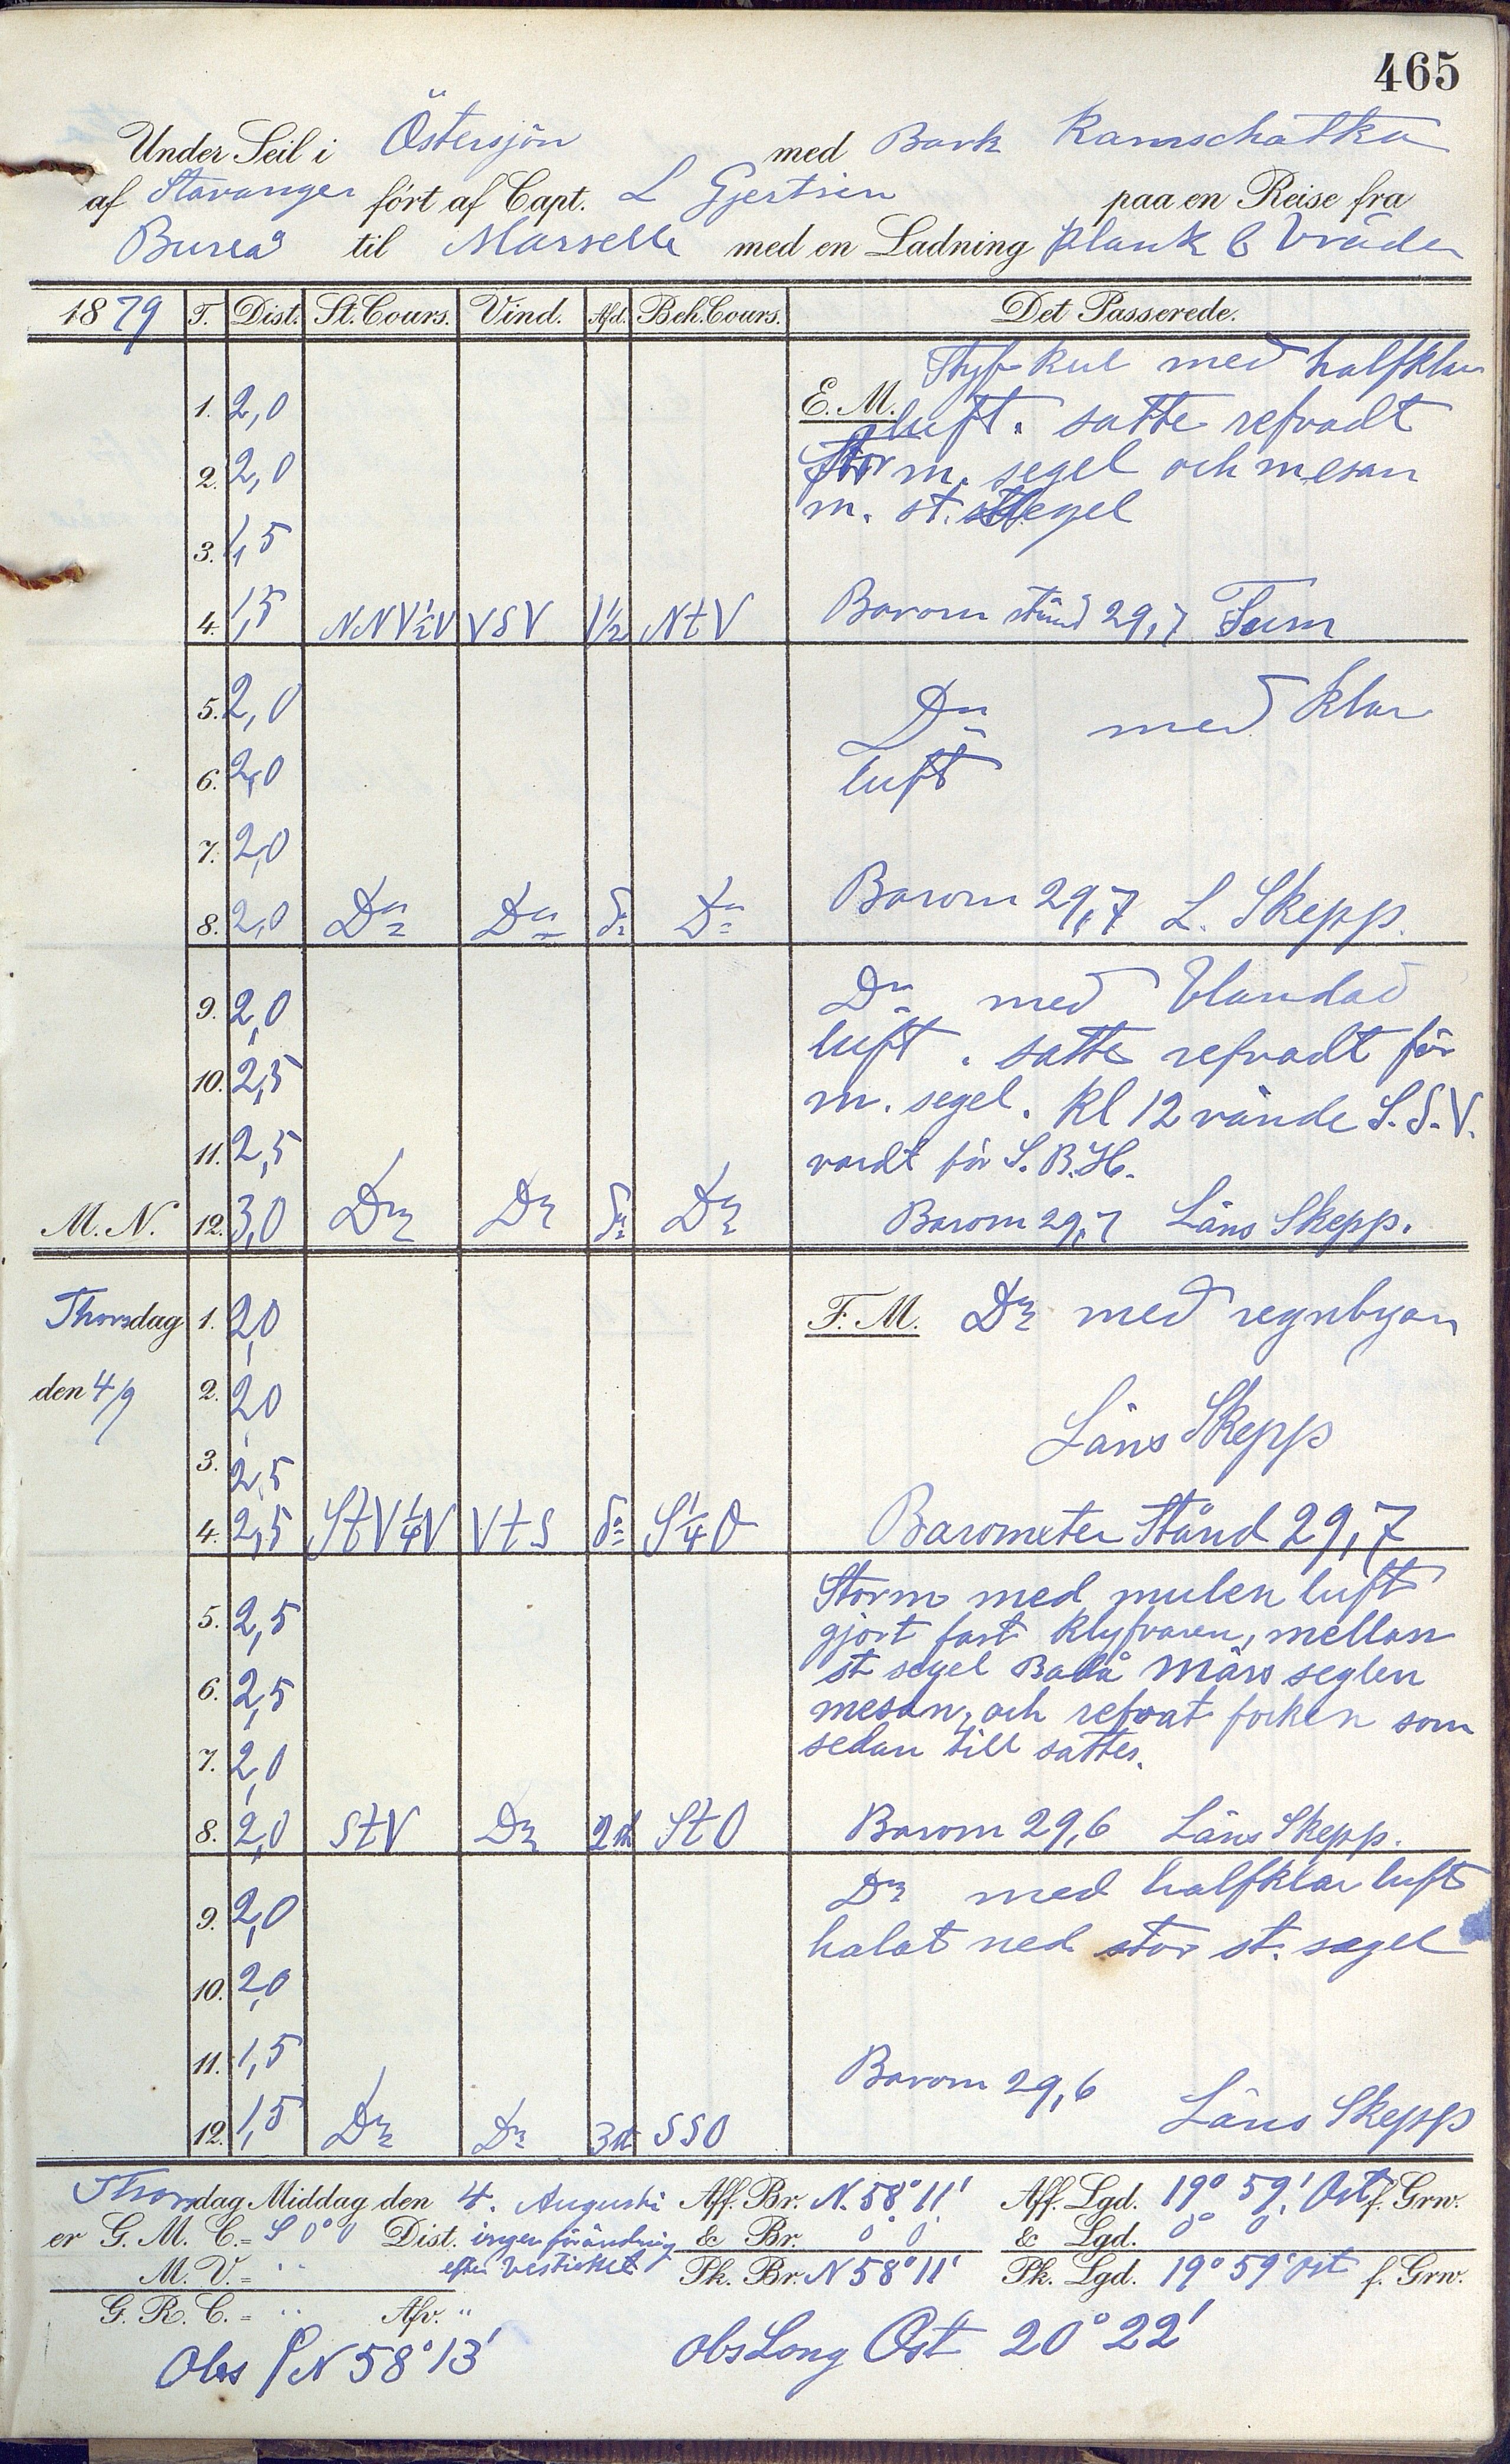 465
Under Seil i Östersjön med Bark Kamschatka
af Stavanger ført af Capt. L Gjertsen paa en Reise fra
Bureå til Marselle med en Ladning plank & bräder
1879 T. Dist. St. Cours. Vind. Afd. Beh. Cours. Det Passerede.
Styf kul med halfklar
1. 2,0 E. M. luft. satte refvadt
2. 2,0 stor m. segel och mesan
3. 1,5 m. st. segel
4. 1,5 NNV½V VSV 1½ NtV Barom stånd 29,7 Tum
5. 2,0 Do med klar
6. 2,0 luft
7. 2,0
8. 2,0 Do Do do Do Barom 29,7 L. Skepp.
9. 2,0 Do med blandad
10. 2,5 luft. satte refvadt för
m. segel. Kl 12 vände S.S.V.
11. 2,5 vardt för S. B. H.
M. N. 12. 3,0 Do Do do Do Barom 29,7 Läns Skepp.
Thorsdag 1. 2,0 F. M. Do med regnbyar
den 4/9 2. 2,0 Läns Skepp
3. 2,5
4. 2,5 StV¼V VtS do S¼O Barometer Stånd 29,7
Storm med mulen luft
5. 2,5 gjort fast klyfvaren, mellan
6. 2,5 st segel Båda Märs seglen
mesan, och refvat focken som
7. 2,0 sedan till sattes.
8. 2,0 StV Do 2 st StO Barom 29,6 Läns Skepp.
9. 2,0 Do med halfklar luft
halat ned stor st. segel
10. 2,0
11. 1,5 Barom 29,6
12. 1,5 Do Do 3 st SSO Läns Skepp
Thorsdag Middag den 4. Augusti Aff. Br. N. 58° 11' Aff. Lgd. 19° 59' Ost f. Grw.
er G. M. C. = S 0° 0 Dist. ingen förändring & Br. 0° 0 & Lgd. 0° 0
M. V. = " efter besticket Pk. Br. N 58° 11' Pk. Lgd. 19° 59' Ost f. Grw.
G. R. C. = " Afv. "
Obs N 58° 13' obs Long Ost 20° 22'